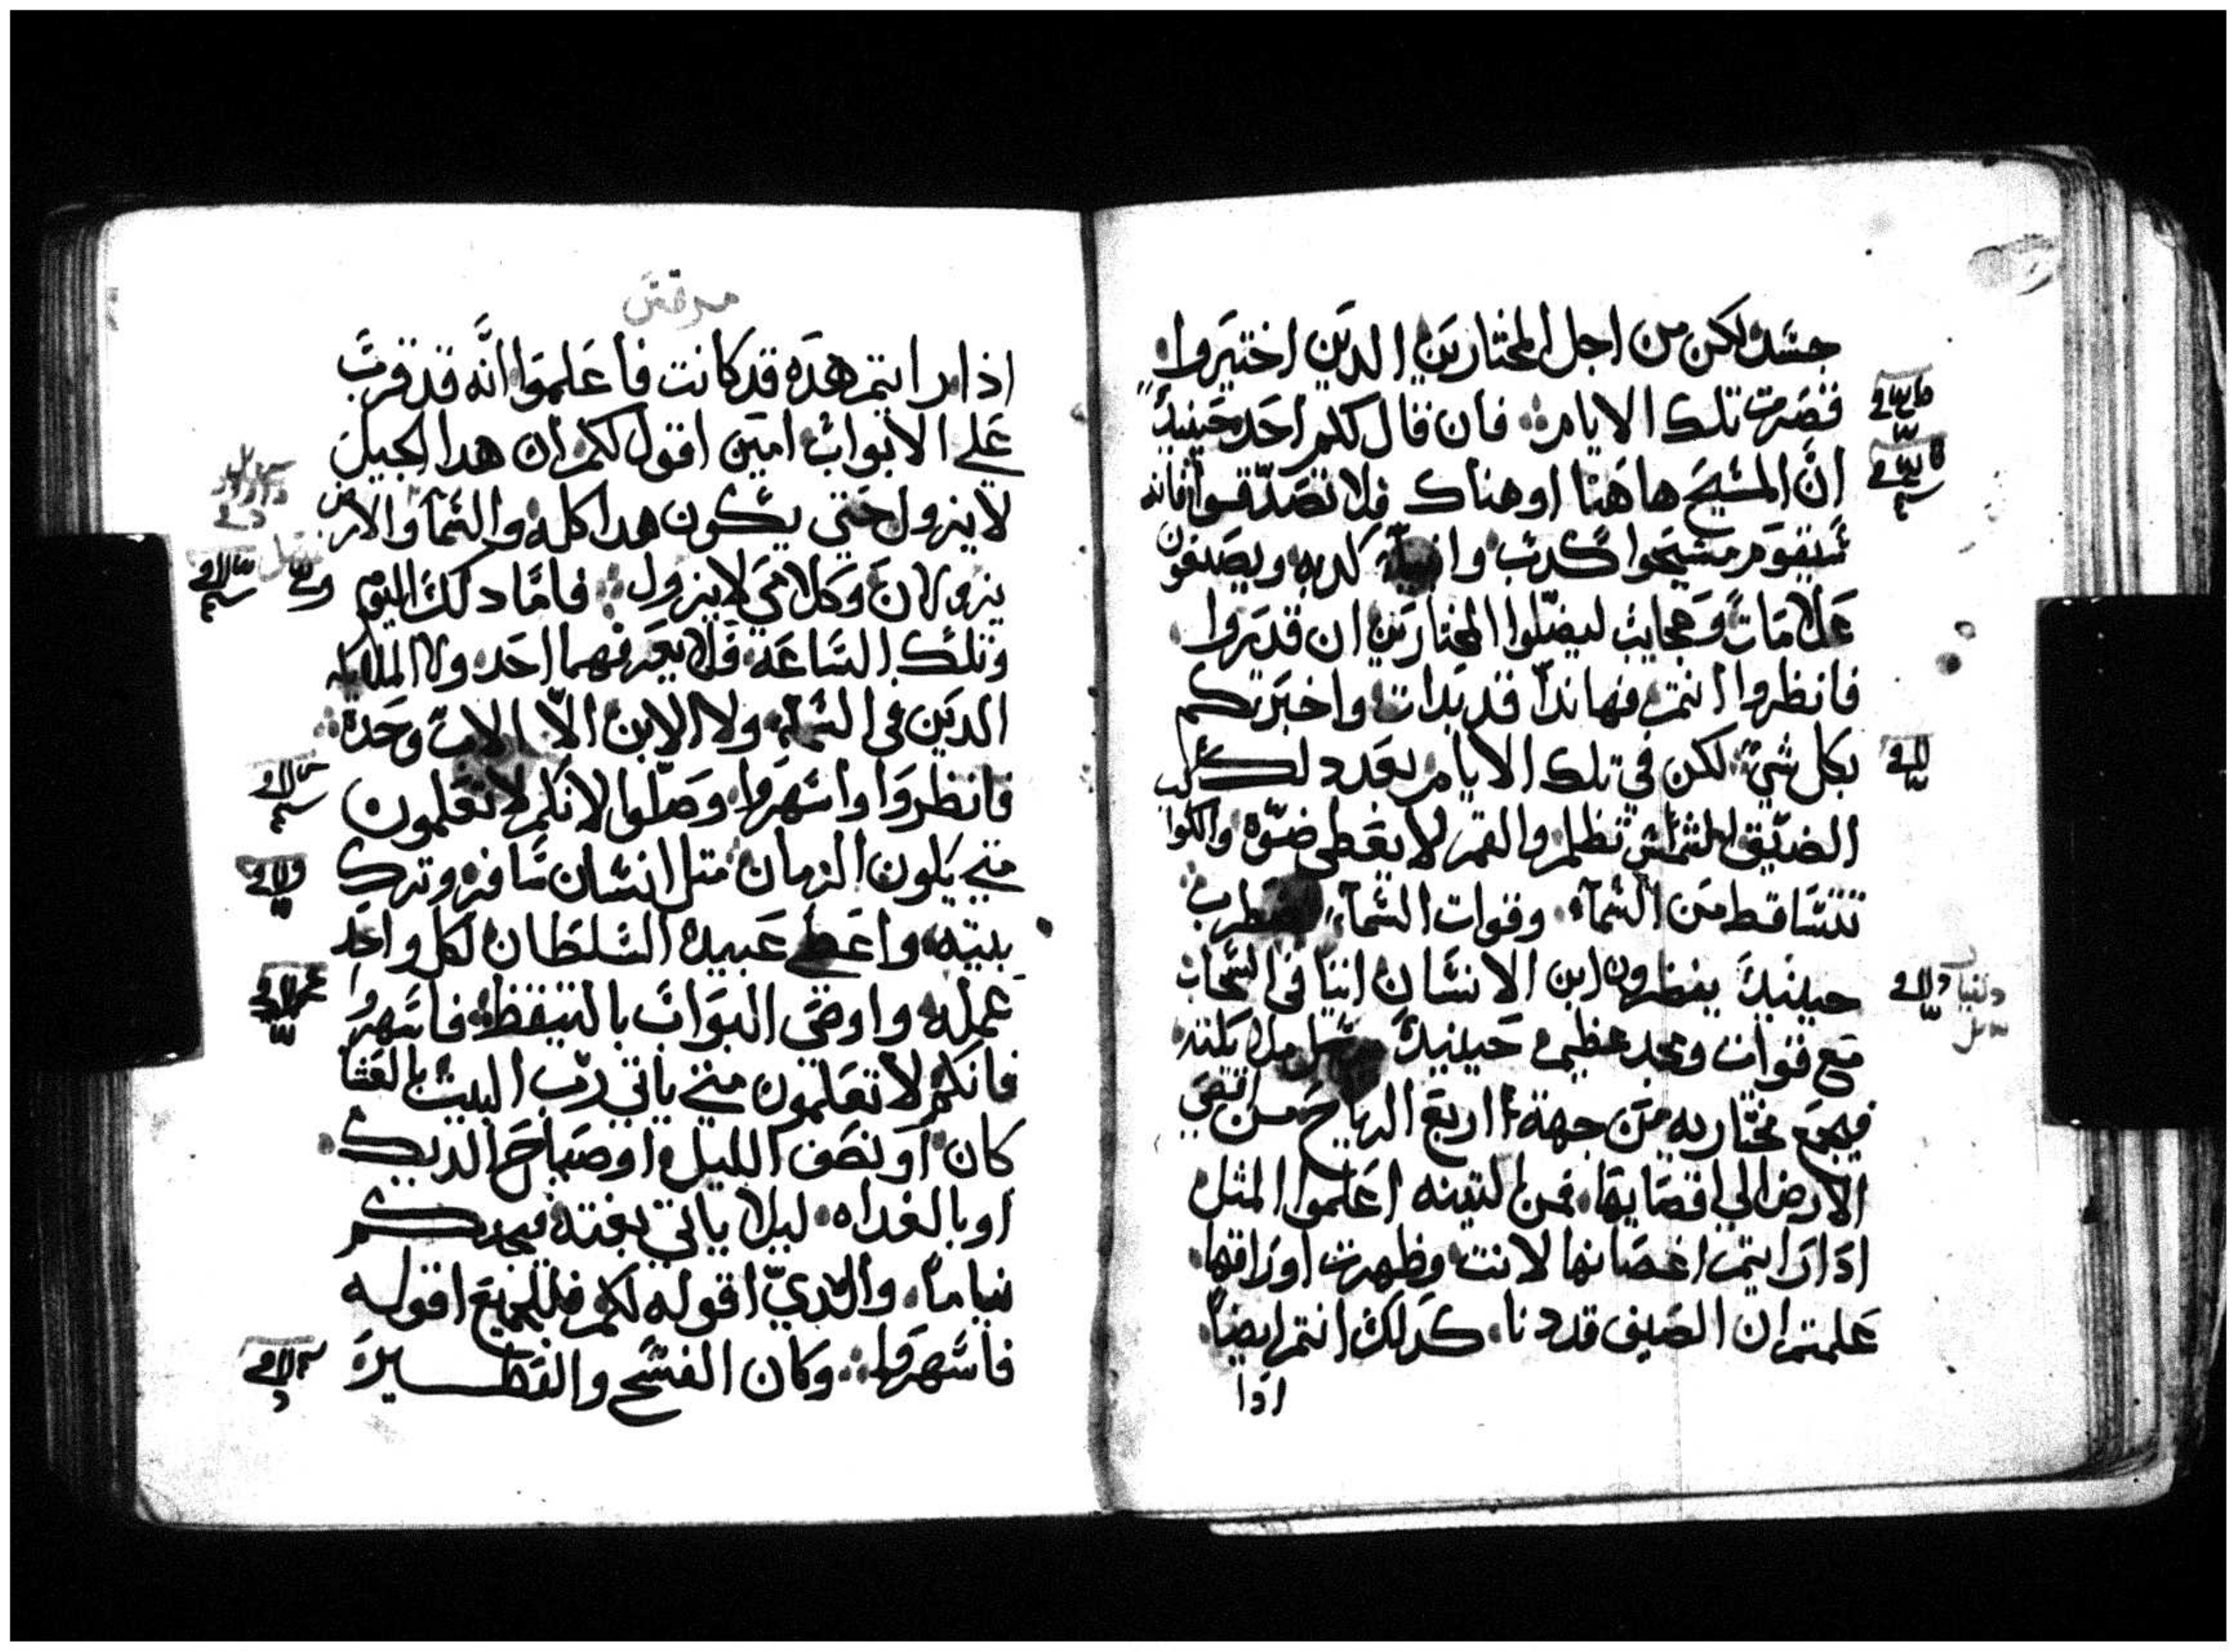 جسد لكن من اجل المختارين الدين اختيروا
قصرت تلك الايام فان قال لكم احد حينيد
ان المسيح هاهنا او هناك فلا تصدقوا فانه
سيقوم مسيحوا كدب وانبيآ كدبه ويصنعون
علامات وعجايب ليضلوا المختارين ان قدروا
فانظروا انتم فهاندا قد بدات واخبرتكم
بكل شي لكن في تلك الايام بعد دلك
الضيق الشمس تظلم والقمر لا يعطي ضوه والكواكب
تتساقط من السمآء وقوات السمآء تضطرب
حينيد ينظرون ابن الانسان اتيا في السحاب
مع قوات ومجد عظيم حينيد يرسل ملايكته
فيجمع مختاريه من جهة اربع الرياح من اقصي
الارض الي اقصايها فمن التينه اعلموا المثل
ادا رايتم اغصانها لانت وظهرت اوراقها
علمتم ان الصيف قد دنا كدلك انتم ايضا
ادا
مرقس
اذا رايتم هده قد كانت فاعلموا انه قد قرب
علي الابواب امين اقول لكم ان هدا الجيل
لا يزول حتي يكون هدا كله والسمآ والارض
يزولان وكلامي لا يزول فاما دلك اليوم
وتلك الساعة فلا يعرفهما احد ولا الملايكه
الدين في السمآء ولا الابن الا الاب وحده
فانظروا واسهروا وصلوا لانكم لا تعلمون
متي يكون الزمان متل انسان سافر وترك
بيته واعطي عبيده السلطان لكل واحد
عمله واوصي البواب بالتيقظ فاسهروا
فانكم لا تعلمون متي ياتي رب البيت بالعشا
كان او نصف الليل او صياح الديك
او بالغداه ليلا ياتي بغتة فيجدكم
نياما والدي اقوله لكم فللجميع اقوله
فاسهروا وكان الفسح والفطيرة